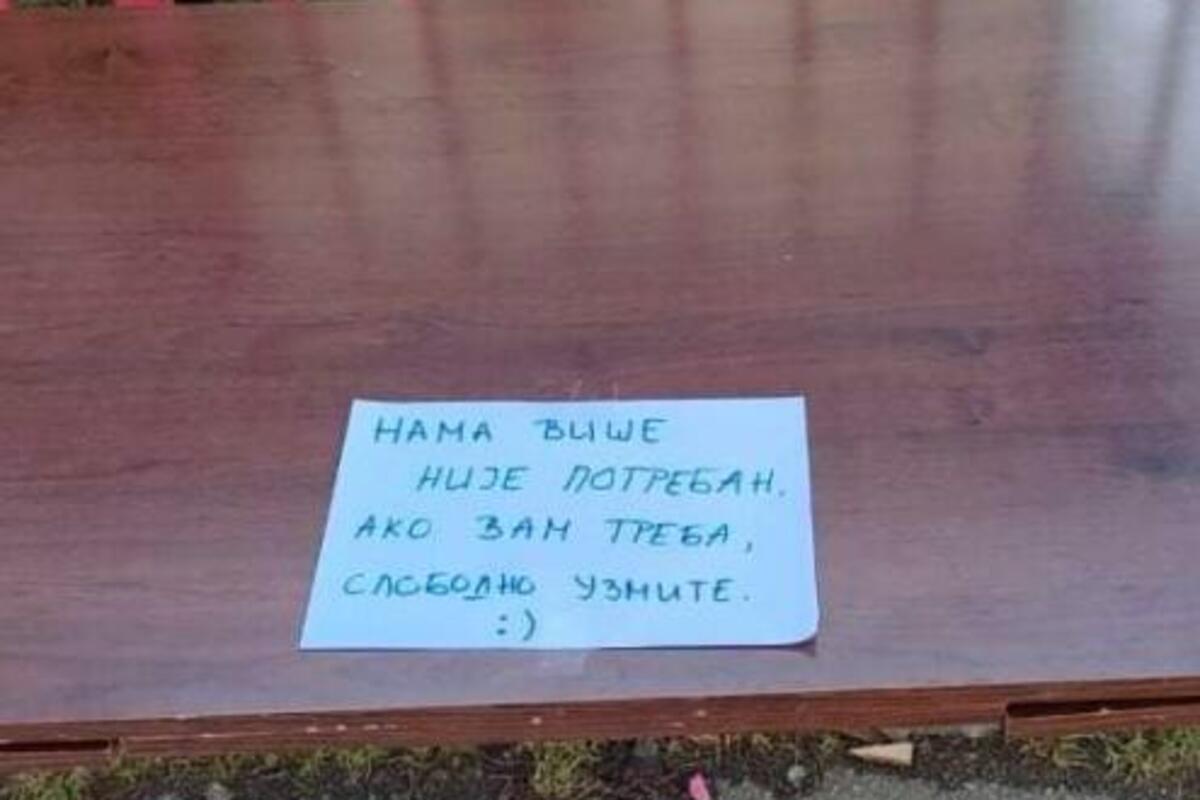 НАМА ВИШЕ
НИЈЕ ПОТРЕБАН.
АКО ВАМ ТРЕБА,
СЛОБОДНО УЗМИТЕ.
:)